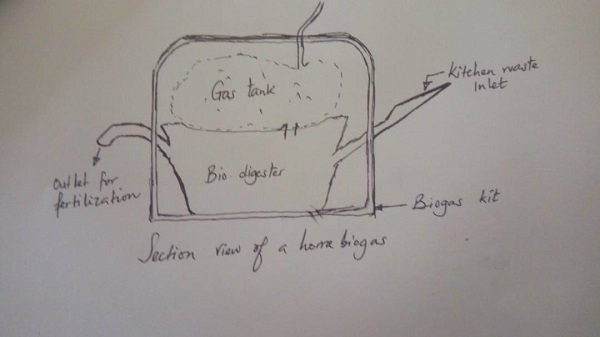 Gas tank
Kitchen waste
Inlet
Bio digester
Outlet for
fertilization
Biogas kit
Section view of a home biogas